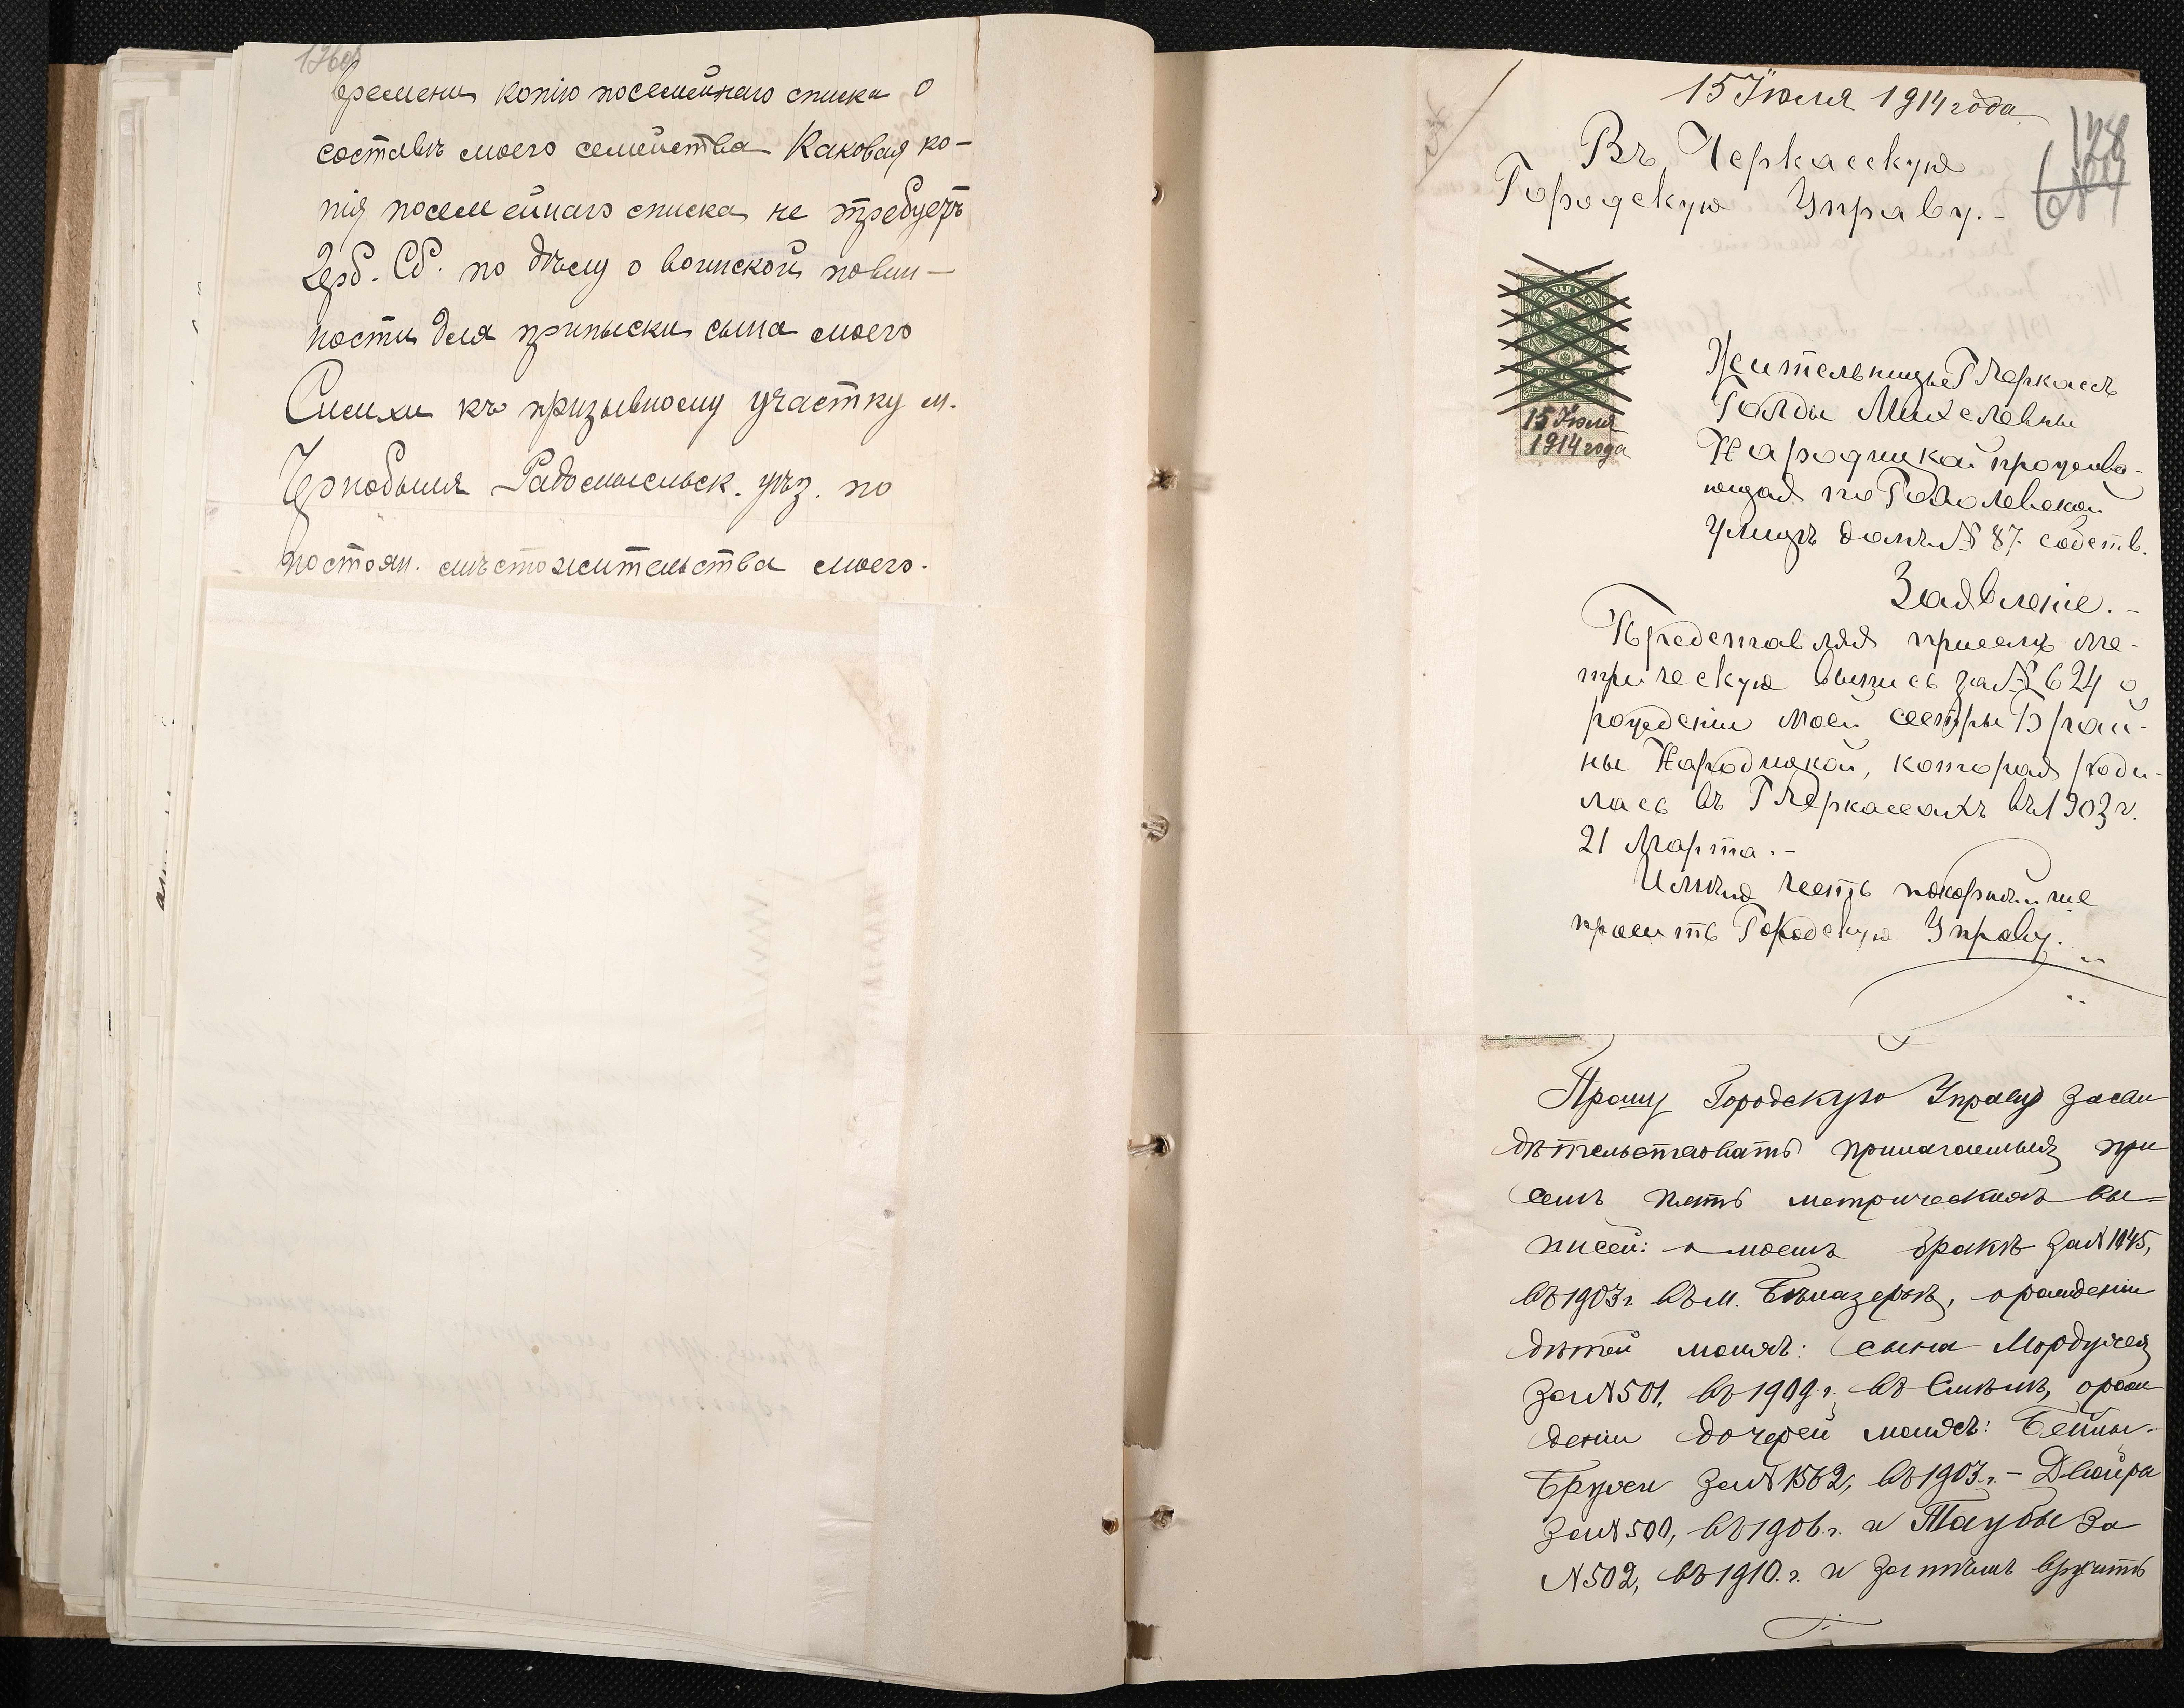 136об
времени копію посемейнаго списка о
составѣ моего семейства Каковая ко-
пія посемейнаго списка не требуетъ
Герб. Сб. по дѣлу о воинской повин-
ности для приписки сына моего
Симхи къ призывному участку м.
Чернобыля Радомысльск. уѣз. по
постоян. мѣстожительства моего.
15 Іюля 1914 года
Въ Черкасскую
Городскую Управу.-
15 Іюля
1914 года
Жительницы Г Черкассъ
Голды Михелевны
Народицкой прожива-
ющая по Гоголевской
улицѣ домъ № 87. собств.
Заявленіе.-
Представляя присемъ ме-
трическую выпись за № 624 о
рожденіи моей сестры Брай-
ны Народицкой, которая роди-
лась въ Г Черкассахъ въ 1903 г.
21 Марта.-
Имѣю честь покорнѣйше
просить Городскую Управу.
Прошу Городскую Управу засви
дѣтельствовать прилагаемыя при
семъ пять метрическихъ вы=
писей: о моемъ бракѣ за N 1145,
въ 1903 г въ м. Бѣлазерьѣ, о рожденіи
дѣтей моихъ: сына Мордухея
за N 501, въ 1909 г. въ Смѣлѣ, о рож
деніи дочерей моихъ: Бейлы-
Брухи за N 1562, въ 1903 г. - Двойра
за N 500, въ 1906. г. и Таубы за
N 502, въ 1910. г. и затѣмъ вручить